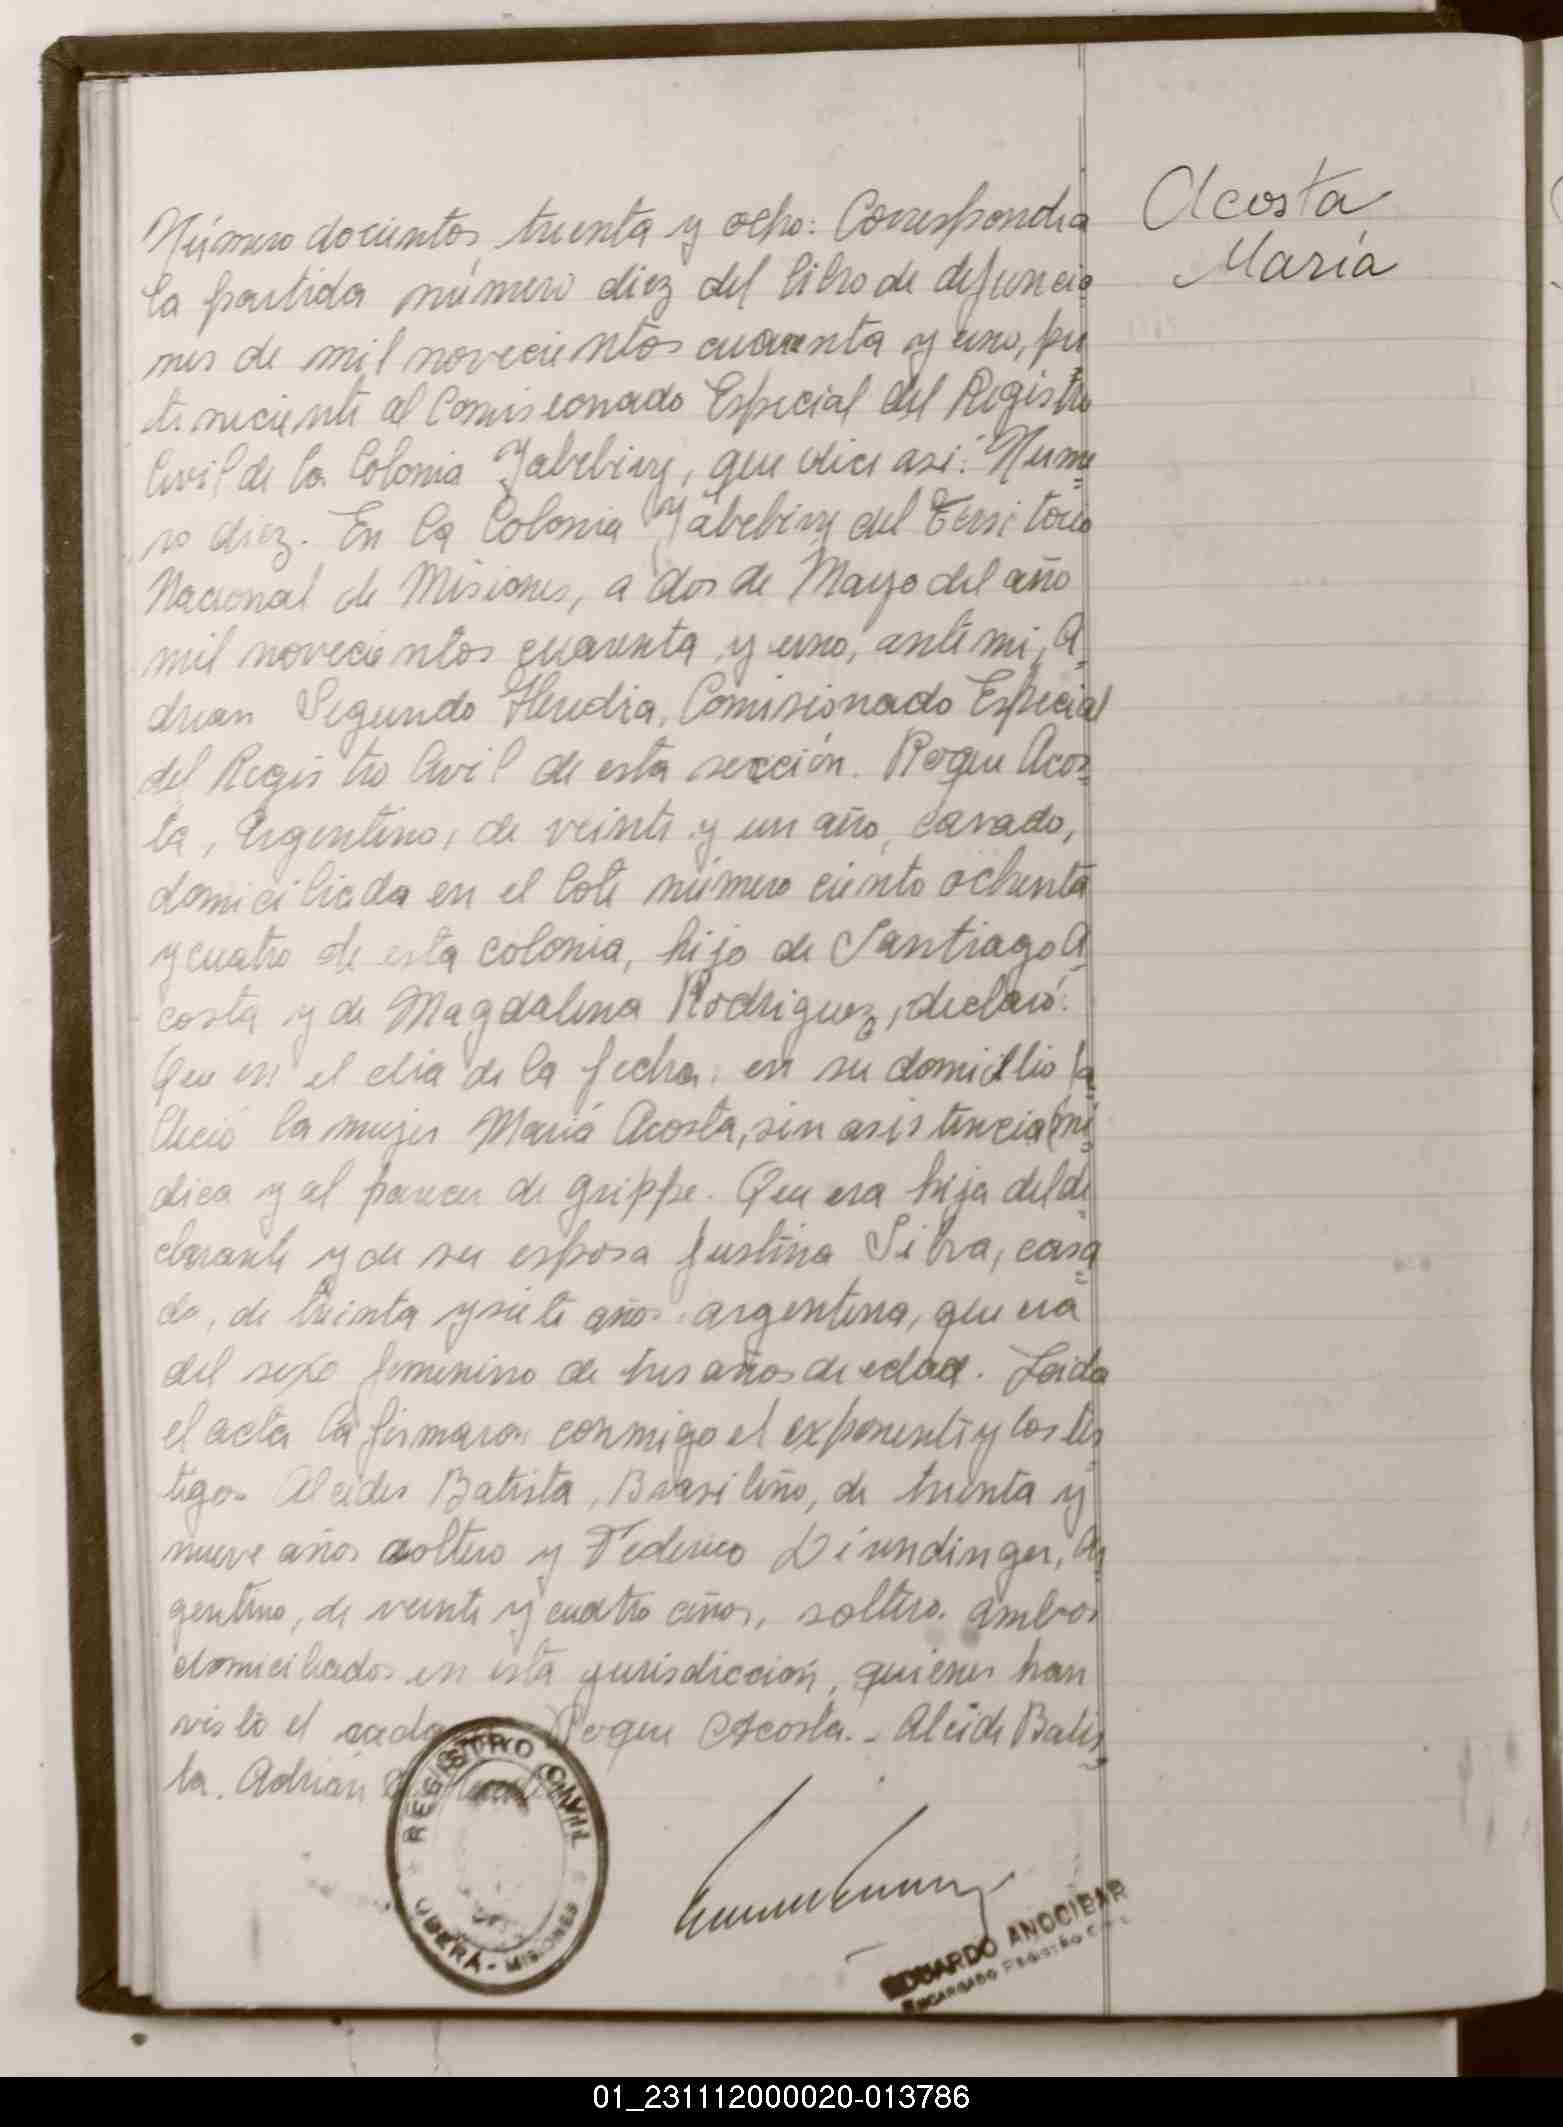 Acosta
María
Número docientos treinta y ocho: Corresponde a
la partida número diez del libro de defuncio
nes de mil novecientos cuarenta y uno, per
teneciente al Comisionado Especial del Registro
Civil de la Colonia Yabebiry, que dice asi: Nume
ro diez. En la Colonia Yabebiry del Territorio
Nacional de Misiones, a dos de Mayo del año
mil novecientos cuarenta y uno, ante mi, A
drian Segundo Heredia, Comisionado Especial
del Registro Civil de esta sección. Roque Acos
ta, Argentino, de veinte y un año, casado,
domiciliado en el lote número ciento ochenta
y cuatro de esta colonia, hijo de Santiago A
costa y de Magdalena Rodriguez, declaró:
Que en el dia de la fecha, en su domicilio fa
lleció la mujer María Acosta, sin asistencia mé
dica y al parecer de grippe. Que era hija del de
clarante y de su esposa Justina Silva, casa
da, de treinta y siete años, argentina, que era
del sexo femenino de tres años de edad. Leida
el acta la firmaron conmigo el exponente y los tes
tigos Alcides Batista, Brasileño, de treinta y
nueve años soltero y Federico Diundinger, Ar
gentino, de veinte y cuatro años, soltero, ambos
domiciliados en esta jurisdicción, quienes han
visto el Roque Acosta. - Alcide Batis
ta. Adrián
REGISTRO CIVIL
OBERÁ - MISIONES
EDUARDO ANOCIBAR
ENCARGADO REGISTRO
01_231112000020-013786